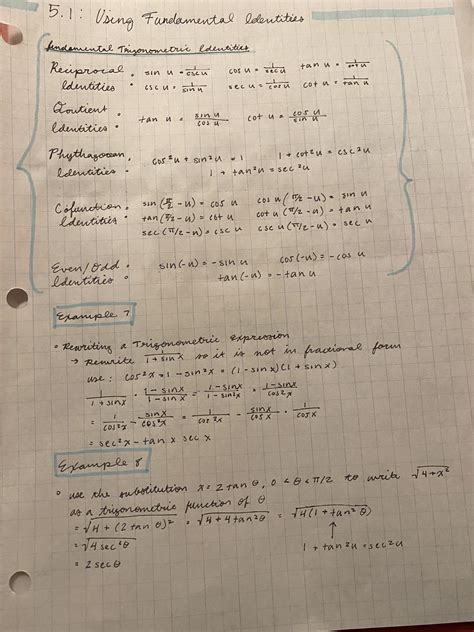 5.1: Using Fundamental Identities
Fundamental Trigonometric Identities
Reciprocal Identities: sin u = 1/csc u cos u = 1/sec u tan u = 1/cot u
csc u = 1/sin u sec u = 1/cos u cot u = 1/tan u
Quotient Identities: tan u = sin u/cos u cot u = cos u/sin u
Phythagorean Identities: cos²u + sin²u = 1 1 + cot²u = csc²u
1 + tan²u = sec²u
Cofunction Identities: sin(π/2 - u) = cos u cos u(π/2 - u) = sin u
tan(π/2 - u) = cot u cot u(π/2 - u) = tan u
sec(π/2 - u) = csc u csc u(π/2 - u) = sec u
Even/Odd Identities: sin(-u) = -sin u cos(-u) = -cos u
tan(-u) = -tan u
Example 7
Rewriting a Trigonometric Expression
→ Rewrite 1/1+sin x so it is not in fracional form
use: cos²x = 1 - sin²x = (1 - sin x)(1 + sin x)
1/1+sin x · 1-sin x/1-sin x = 1-sin x/1-sin²x = 1-sin x/cos²x
= 1/cos²x - sin x/cos²x = 1/cos²x - sin x/cos x · 1/cos x
= sec²x - tan x sec x
Example 8
use the substitution x = 2 tan θ, 0 < θ < π/2 to write √4+x²
as a trigonometric function of θ
= √4 + (2 tan θ)² = √4 + 4 tan²θ = √4(1 + tan²θ)
= √4 sec²θ
↑
1 + tan²u = sec²u
= 2 sec θ